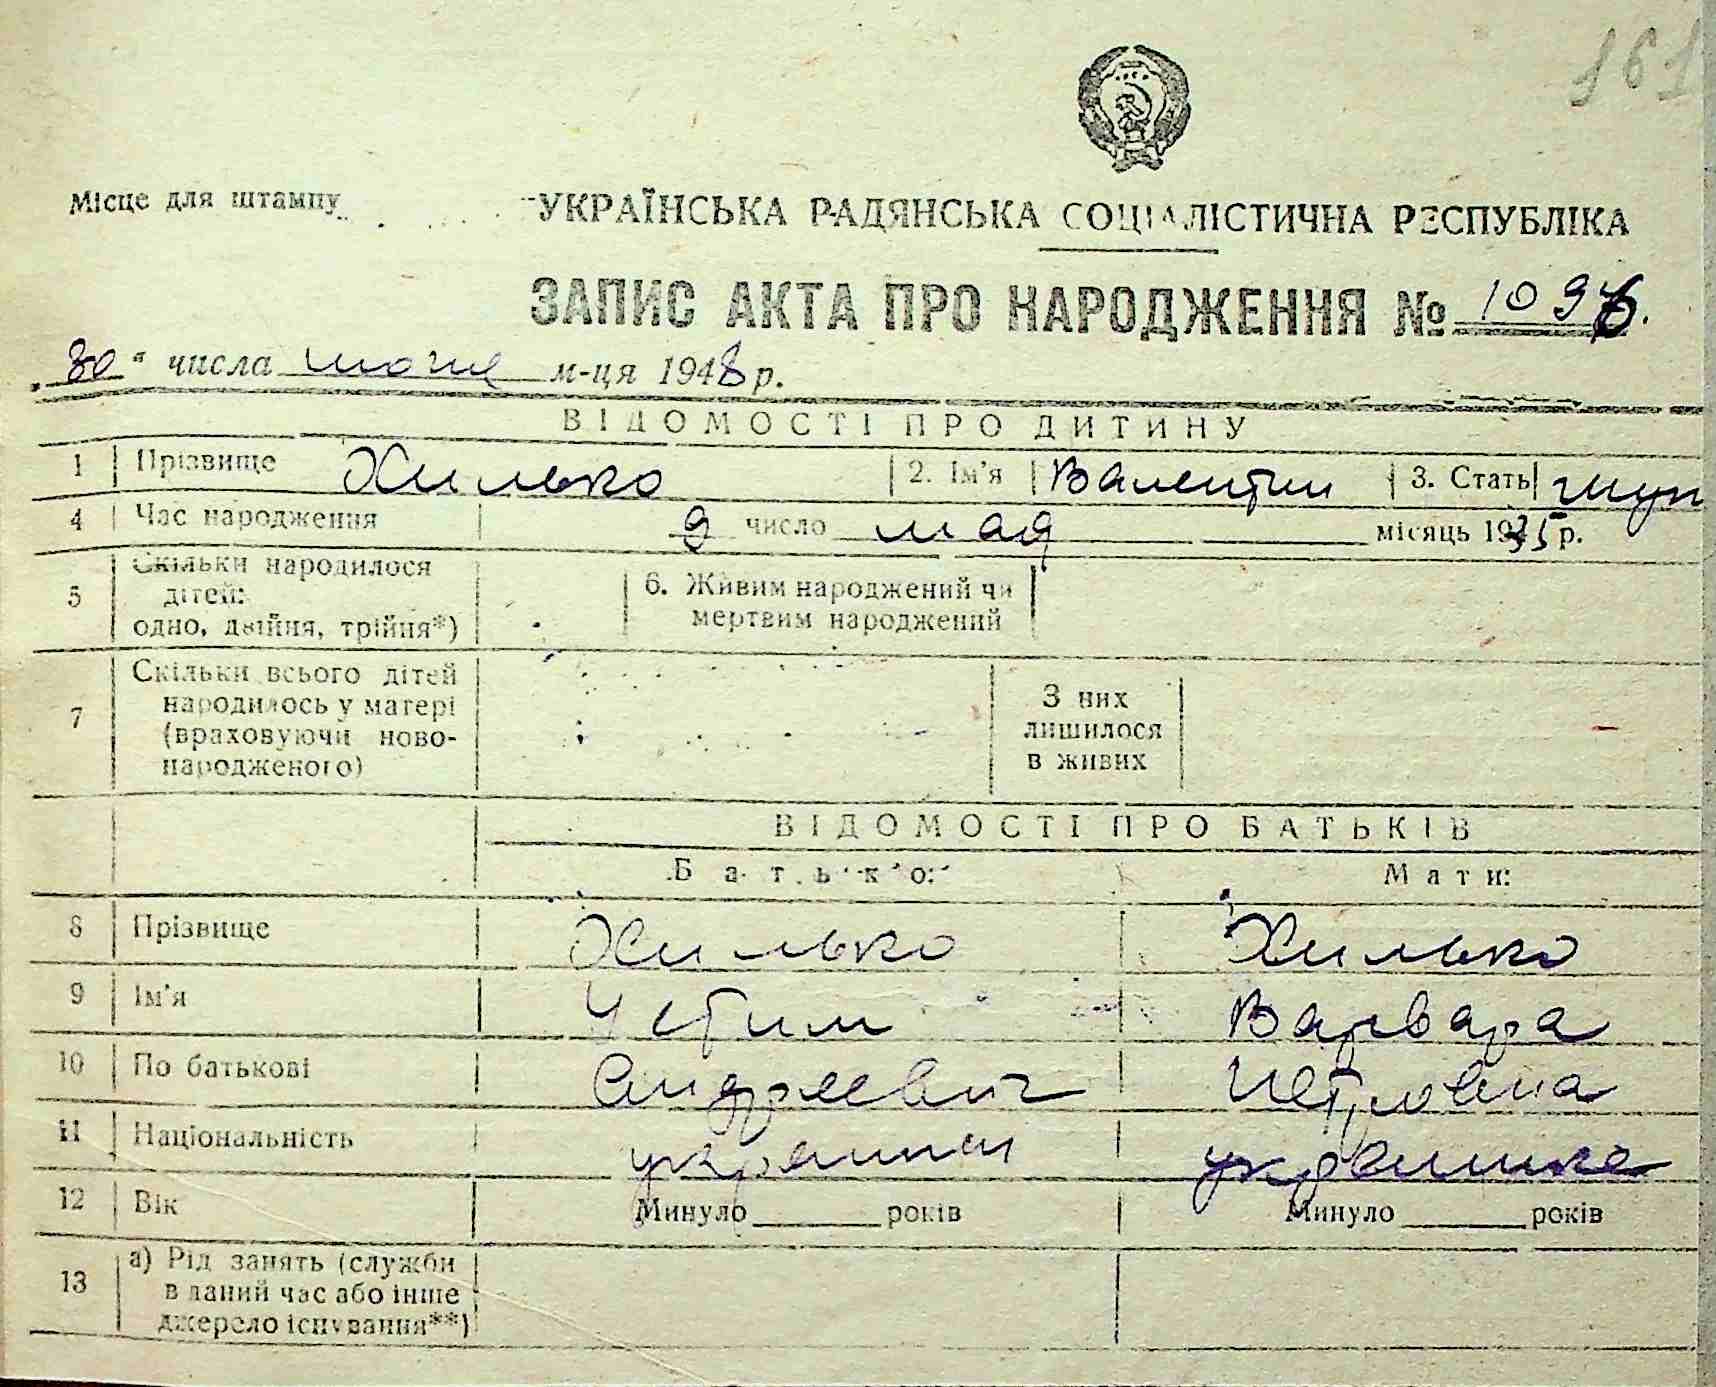 161
Місце для штампу
УКРАЇНСЬКА РАДЯНСЬКА СОЦІАЛІСТИЧНА РЕСПУБЛІКА
ЗАПИС АКТА ПРО НАРОДЖЕННЯ № 1096.
„30“ числа июня м-ця 1948 р.
ВІДОМОСТІ ПРО ДИТИНУ
1 Прізвище Хилько 2. Ім'я Валентин 3. Стать муж
4 Час народження 9 число мая місяць 1935 р.
5 Скільки народилося дітей: одно, двійня, трійня*) 6. Живим народжений чи мертвим народжений
7 Скільки всього дітей народилось у матері (враховуючи новонародженого) З них лишилося в живих
ВІДОМОСТІ ПРО БАТЬКІВ
Батько: Мати:
8 Прізвище Хилько Хилько
9 Ім'я Устим Варвара
10 По батькові Андреевич Петровна
11 Національність украинец украинка
12 Вік Минуло ____ років Минуло ____ років
13 а) Рід занять (служби в даний час або інше джерело існування**)